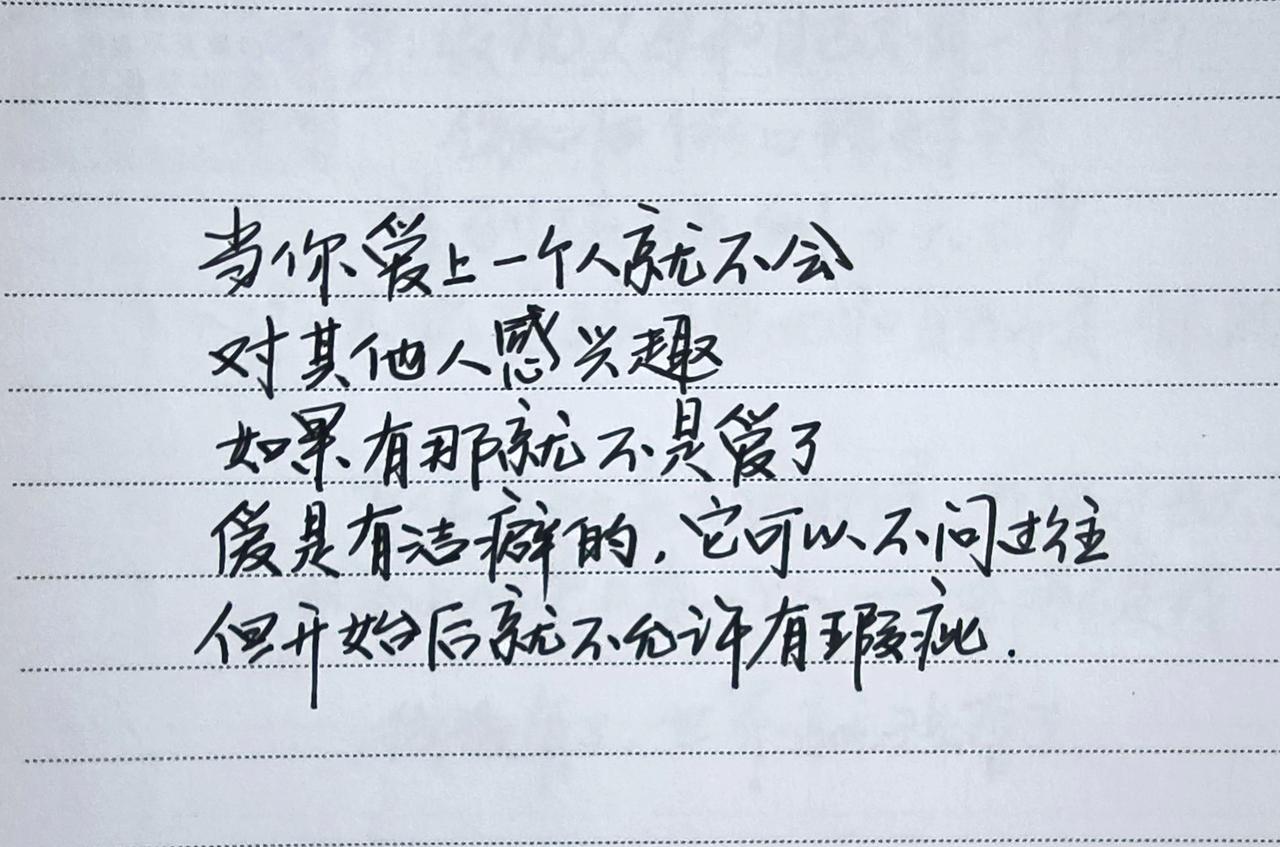 当你爱上一个人就不会
对其他人感兴趣
如果有那就不是爱了
爱是有洁癖的,它可以不问过往
但开始后就不允许有瑕疵.